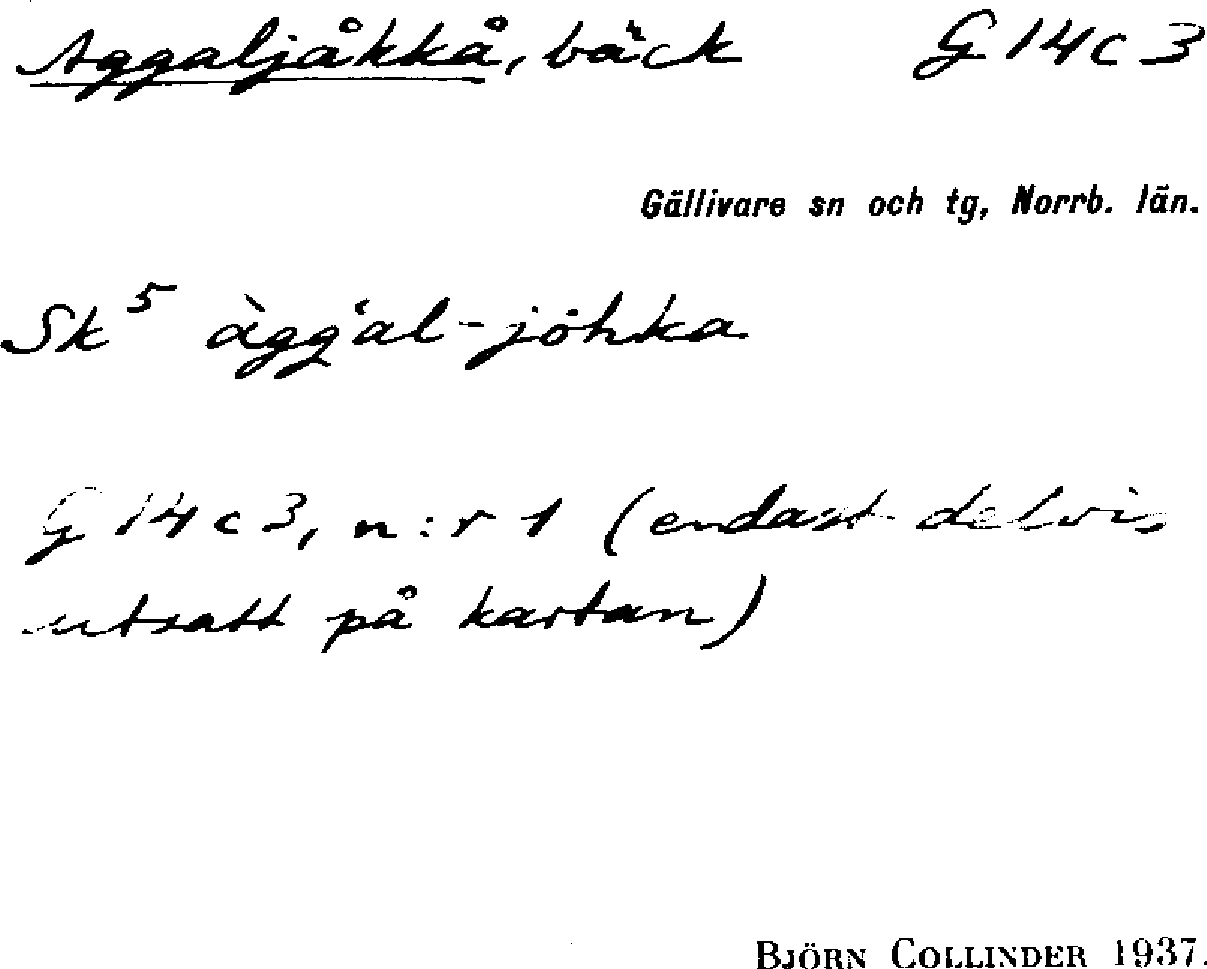 Aggaljåkkå, bäck G 14 c 3
Gällivare sn och tg, Norrb. län.
Sk⁵ àgg'al-jȯhka
G 14 c 3, n:r 1 (endast delvis
utsatt på kartan)
BJÖRN COLLINDER 1937.